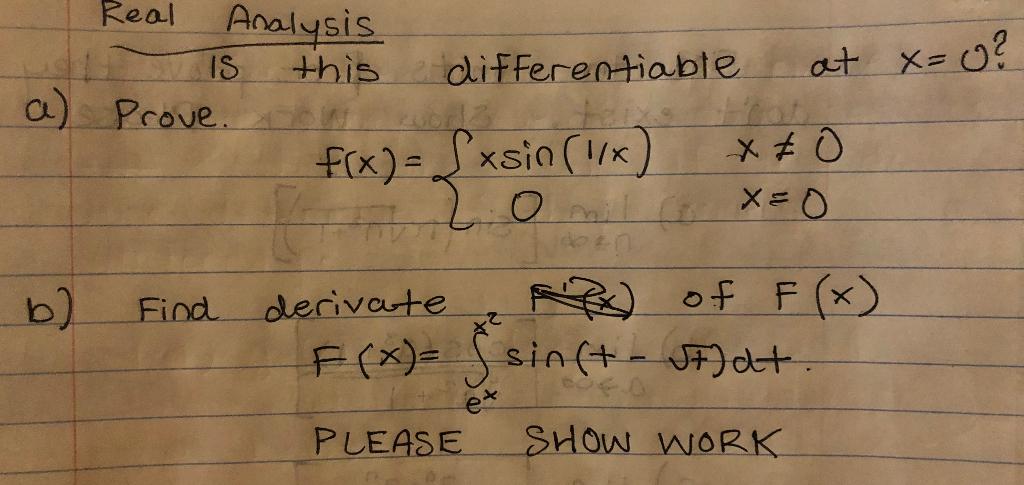 Real Analysis
Is this differentiable at x=0?
a) Prove.
f(x) = { xsin(1/x) x ≠ 0
0 x = 0
b) Find derivate of F(x)
F(x) = ∫ sin(t - √t)dt.
x²
eˣ
PLEASE SHOW WORK